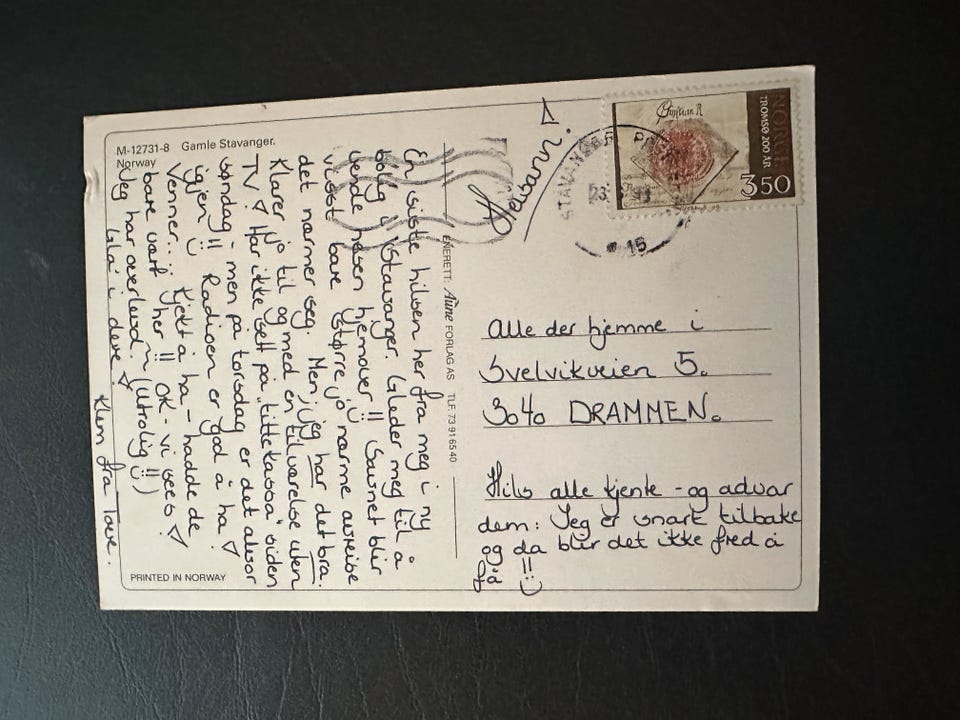 M-12731-8 Gamle Stavanger.
Norway
Heisann!
En siste hilsen her fra meg i ny
bolig i Stavanger. Gleder meg til å
vende nesen hjemover!! Savnet blir
visst bare større jo nærme avreise
det nærmer seg. Men, jeg har det bra.
Klarer jo til og med en tilværelse uten
TV! Har ikke sett på "tittekassa" siden
søndag - men på torsdag er det alvor
igjen!! Radioen er god å ha!
Venner... Kjekt å ha - hadde de
bare vært her!! OK - vi sees!
Jeg har overlevd. (Utrolig!!)
Glad i dere!
Klem fra Tove.
ENERETT: Aune FORLAG AS TLF. 73 91 65 40
PRINTED IN NORWAY
NORGE
TROMSØ 200 ÅR
Christian R
350
STAVANGER
15
Alle der hjemme i
Svelvikveien 5.
3040 DRAMMEN.
Hils alle kjente - og advar
dem: Jeg er snart tilbake
og da blir det ikke fred å
få!!